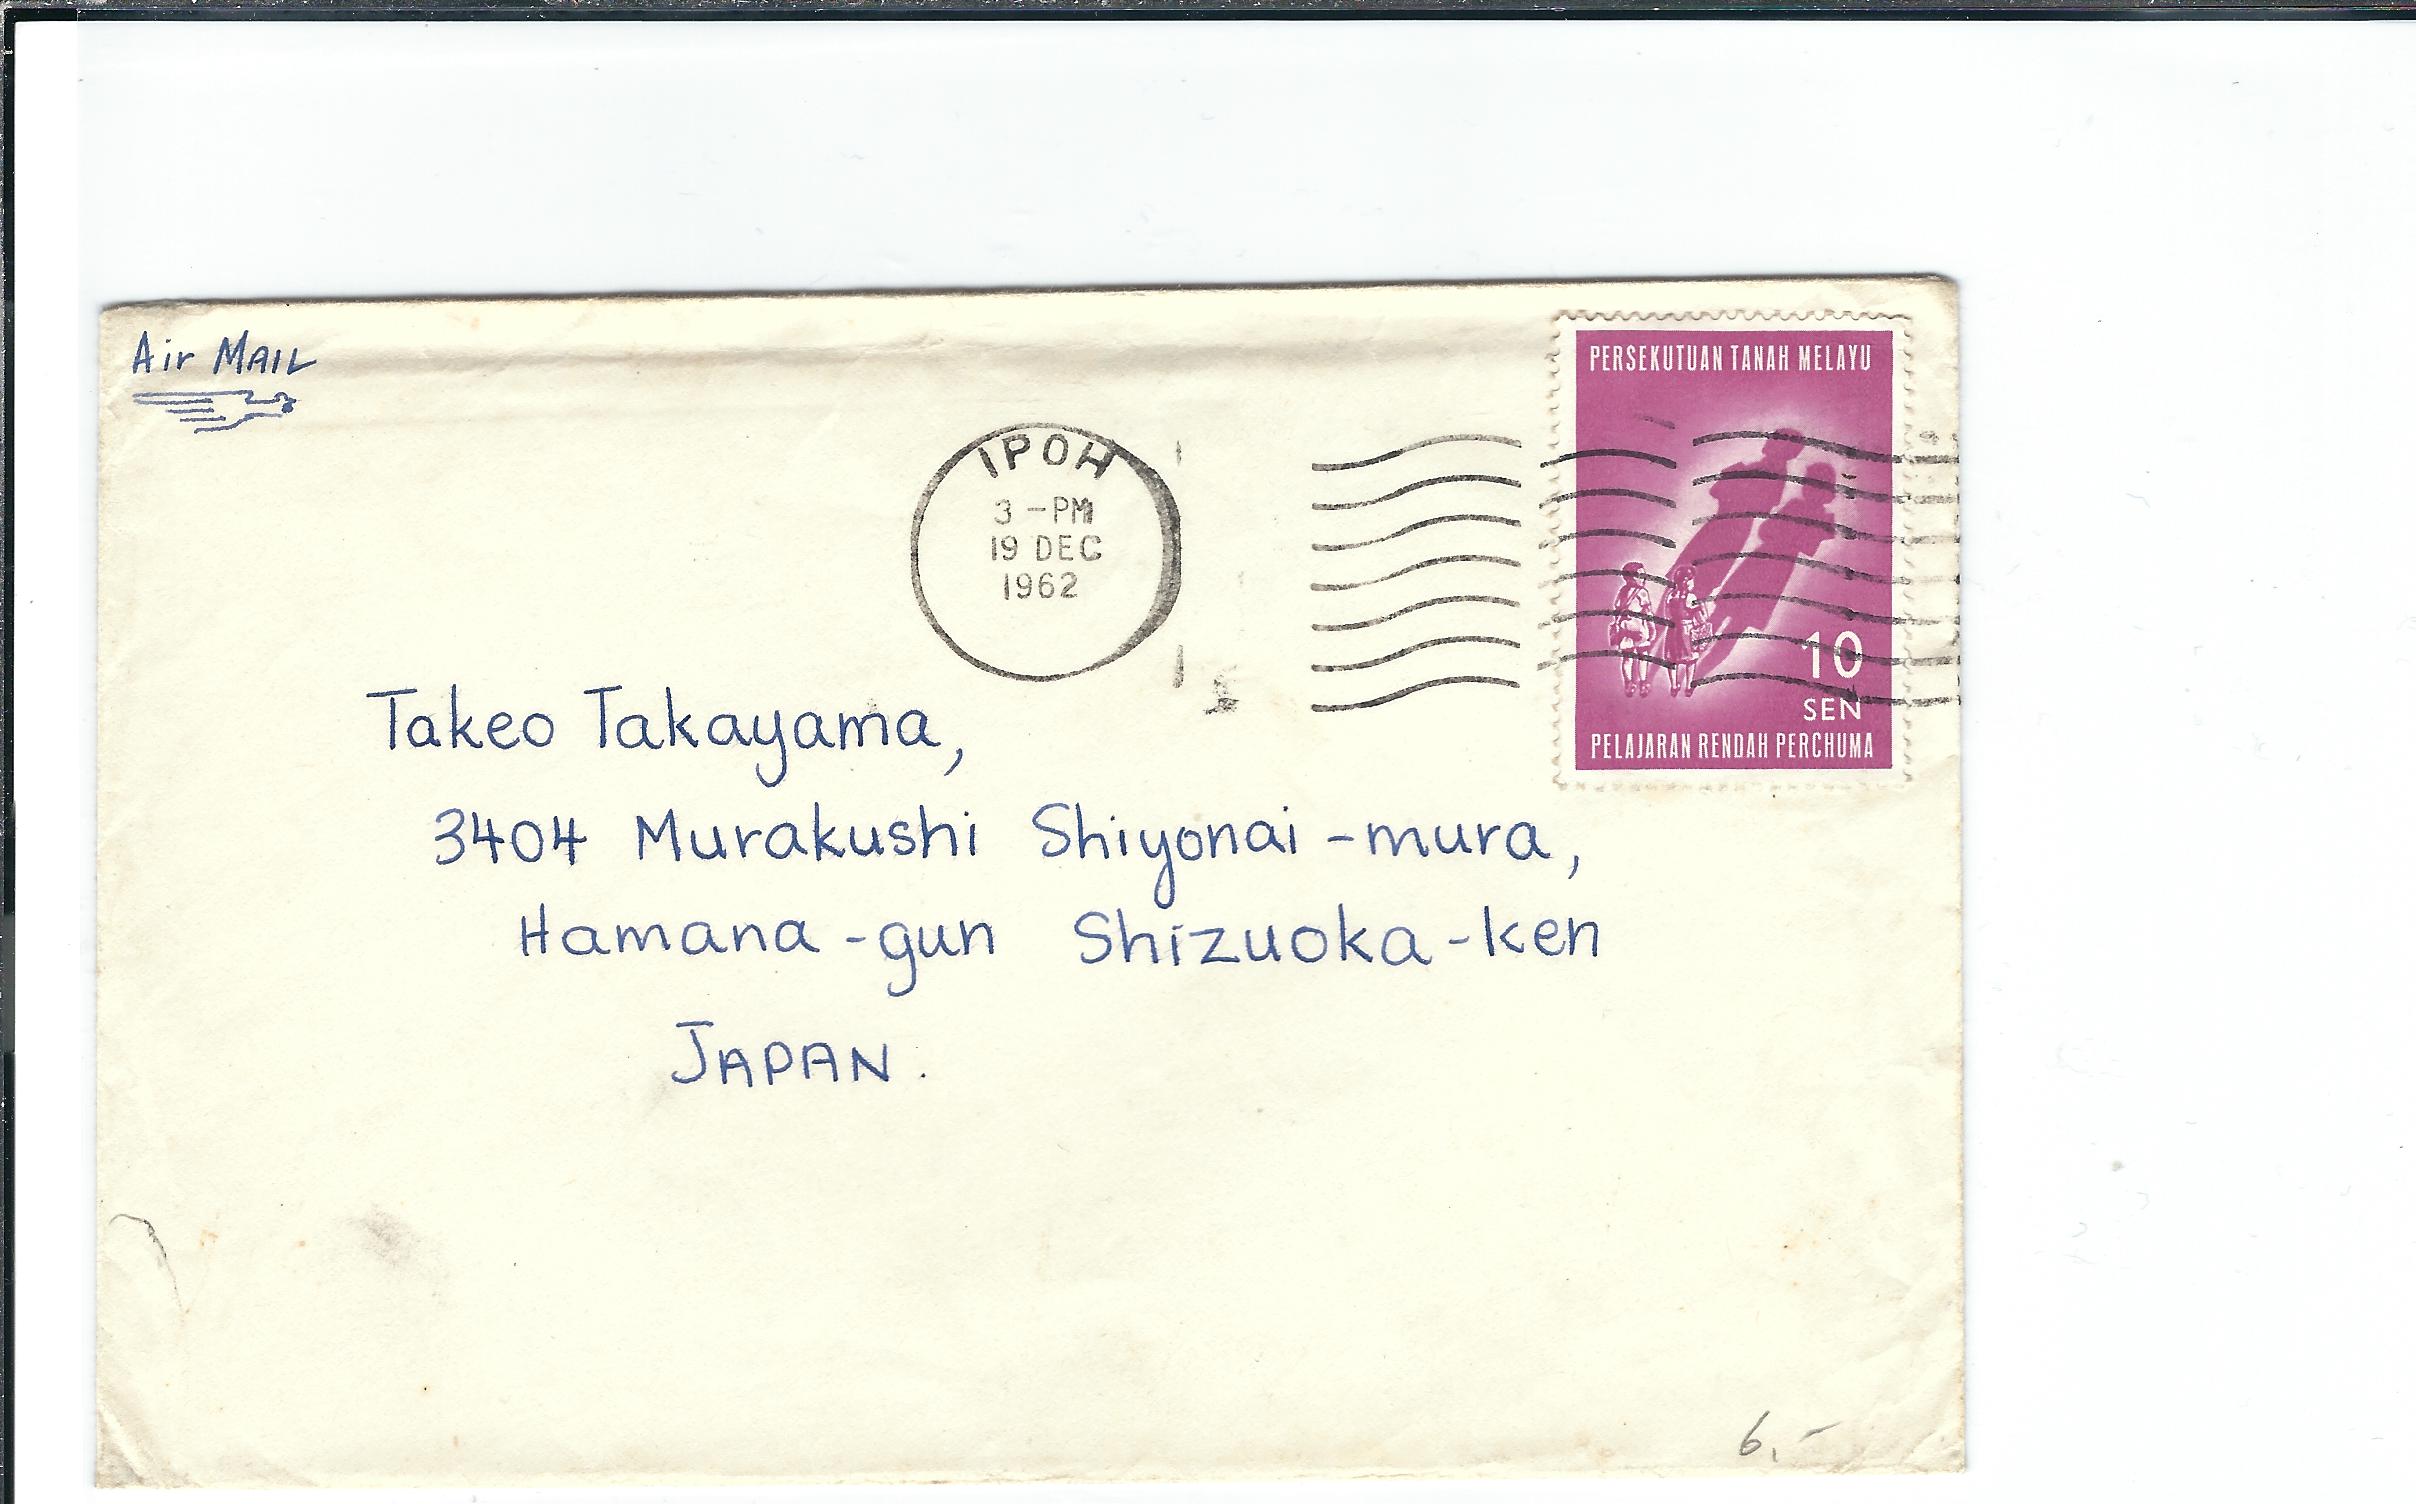 Air MAIL
PERSEKUTUAN TANAH MELAYU
IPOH
3 -PM
19 DEC
1962
10
SEN
PELAJARAN RENDAH PERCHUMA
Takeo Takayama,
3404 Murakushi Shiyonai -mura,
Hamana -gun Shizuoka -ken
JAPAN.
6,-